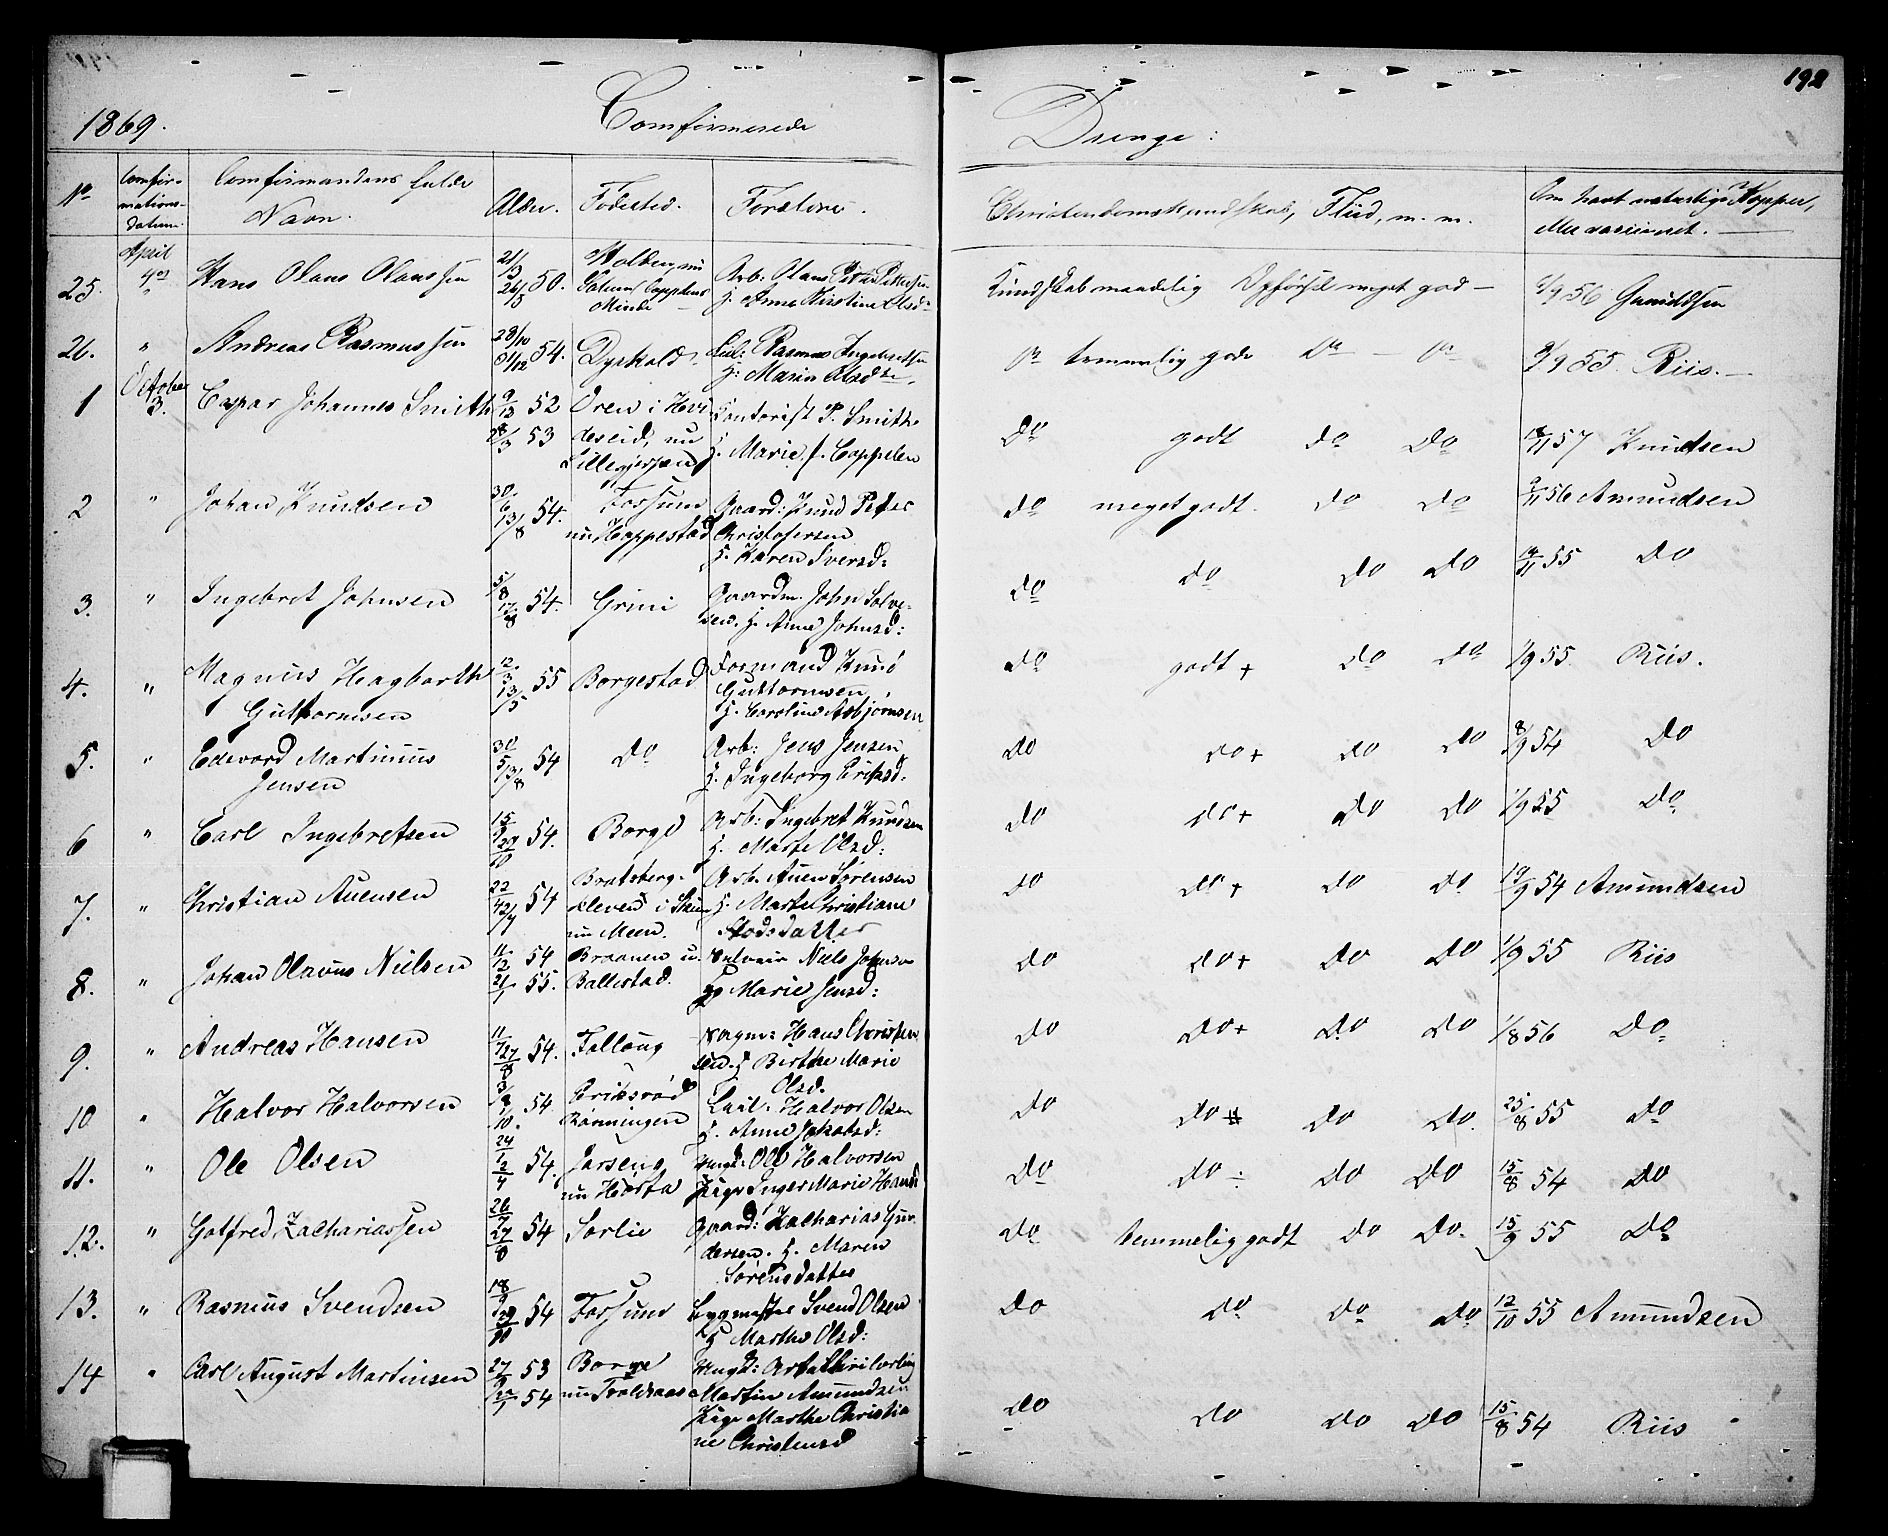 192
1869.
Comfirmerede
Drenge:
No
Comfir-
mations-
datum
Comfirmandens fulde
Navn.
Alder.
Fødested.
Forældre.
Christendomskundskab, Fliid, m. m.
Om havt naturlige Kopper,
eller vaccineret.
25.
April
4de
Hans Olaus Olaussen
50.
Holden, nu
Minde
Arb: Olaus Peter Pettersen
H. Anne Kirstine Olsd
Kundskab maadelig Opførsel meget god
6/9 56 Gunildsen
26.
"
Andreas Rasmussen
28/10
31/12 54.
Dyrkold.
Rasmus Ingebretsen
H. Maren Olsd
Do temmelig god Do Do
9/9 55. Riis.
1
October
3.
Caspar Johannes Smith
9/12 52
28/3 53
Oren i Hvi
deseid, nu
Lillegjersøen
Contorist P. Smith
H. Marie f. Cappelen
Do godt Do Do
18/11 57 Knudsen
2
"
Johan Knudsen
30/6
13/8 54.
Fossum
nu Hoppestad
Gaard: Knud Peter
Christofersen
H. Karen Sversd:
Do meget godt. Do Do
9/11 56 Amundsen
3.
"
Ingebret Johnsen
5/8
17/8 54.
Grini
Gaardm. John Solve-
sen. H. Anne Johnsd:
Do Do Do Do
14/11 55 Do
4.
"
Magnus Hagbarth
Guttormsen
12/3
13/5 55
Borgestad
Formand Knud
Guttormsen
H. Caroline Asbjørnsen
Do godt + Do Do
1/9 55. Riis.
5.
"
Edevard Martinius
Jensen
30/5
13/8 54
Do
Arb: Jens Jensen
H. Ingeborg Eriksd.
Do Do + Do Do
8/9 54 Do
6
"
Carl Ingebretsen
15/9
29/10 54.
Borge
Arb: Ingebret Knudsen
H. Marte Olsd:
Do Do + Do Do
1/9 55 Do
7.
"
Christian Auensen
22/4 54
Bratsberg-
kleven i Skien
nu Meen.
Arb. Auen Sørensen
H. Marte Christiane
Do Do + Do Do
19/9 54 Amundsen
8.
"
Johan Olavus Nielsen
11/12 54
21/1 55.
Braanen u.
Ballestad.
Niels Johnsen
H. Marie Jensd:
Do Do + Do Do
1/9 55 Riis
9.
"
Andreas Hansen
11/7
27/8 54.
Follaug
Hans Christen
sen. H Berthe Marie
Olsd.
Do Do + Do Do
1/8 56 Do
10
"
Halvor Halvorsen
3/8
1/10 54.
Eriksrød
Rønningen
Halvor Olsen
H. Anne Jakobsd:
Do Do Do Do.
25/8 55 Do
11.
"
Ole Olsen
24/1
2/4 54.
Jarseng
nu Hørta
Ungk: Ole Halvorsen
Pige Inger Marie Hansd
Do Do ÷ Do Do
15/8 54 Do
12.
"
Gotfred Zachariassen
26/7
27/8 54
Sørlie
Gaard: Zacharias Gun-
dersen. H. Maren
Sørensdatter
Do temmelig godt Do Do.
15/9 55 Do
13.
"
Rasmus Svendsen
18/9
29/10 54
Fossum
Bygmester Svend Olsen
H Marthe Olsd:
Do Do Do Do
12/10 55 Amundsen
14
"
Carl August Martinsen
27/9 53
22/1 54
Borge
nu Troldsaas
Martin Amundsen
Pige Marthe Christia
ne Christensd
Do Do Do Do
15/8 54 Riis